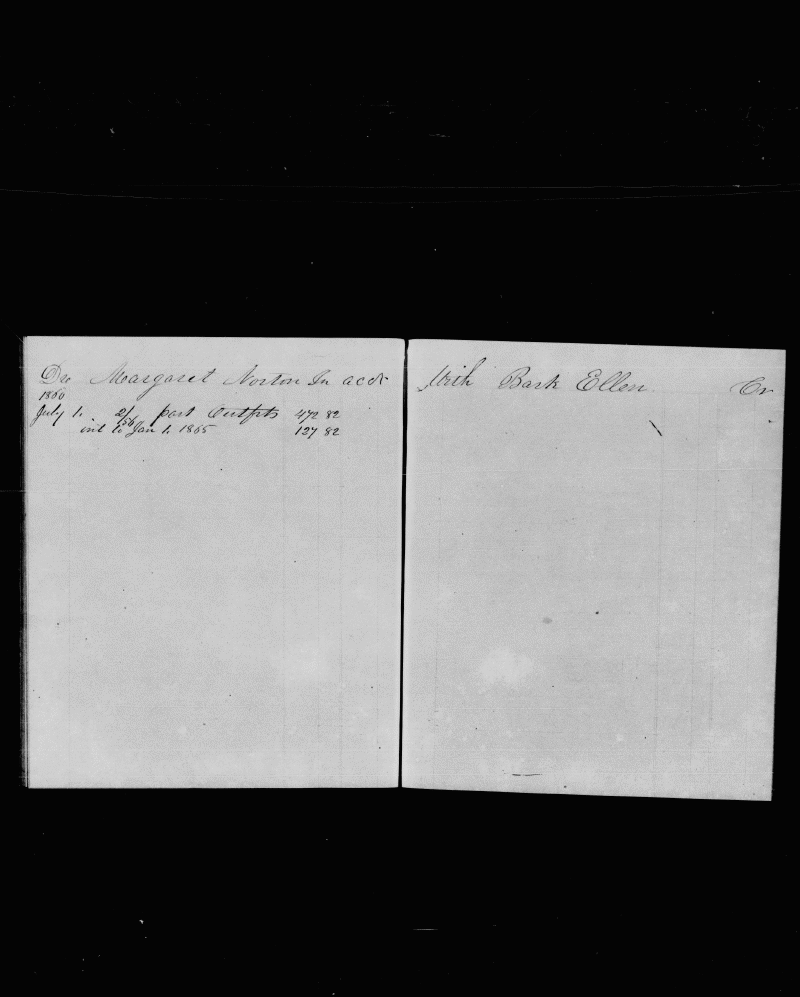 Dr Margaret Norton In acct
1860
July 1. 2/56 part Outfits 472 82
int to Jan 1. 1865 127 82
With Bark Ellen Cr